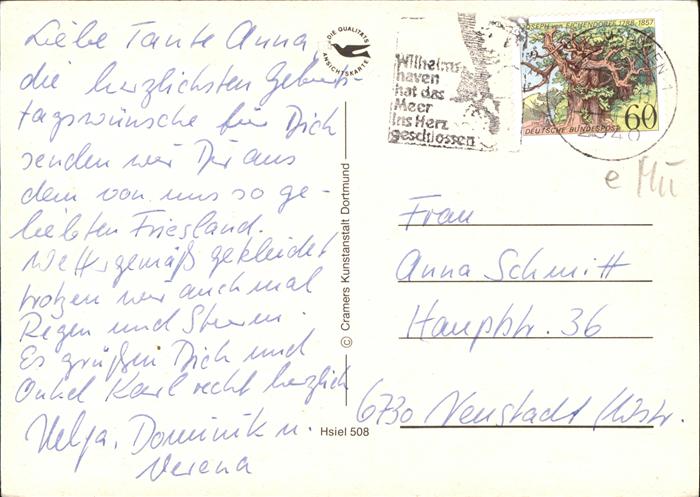 Liebe Tante Anna,
die herzlichsten Geburts-
tagswünsche für Dich
senden wir Dir aus
dem von uns so ge-
liebten Friesland.
Wettergemäß gekleidet
trotzen wir auch mal
Regen und Sturm.
Es grüßen Dich und
Onkel Karl recht herzlich
Helga, Dominik u.
Verena
DIE QUALITÄTS
ANSICHTSKARTE
© Cramers Kunstanstalt Dortmund
Hsiel 508
Wilhelms
haven
hat das
Meer
ins Herz
geschlossen
JOSEPH von EICHENDORFF 1788-1857
60
DEUTSCHE BUNDESPOST
e MÜ
Frau
Anna Schmitt
Hauptstr. 36
6730 Neustadt /Wstr.